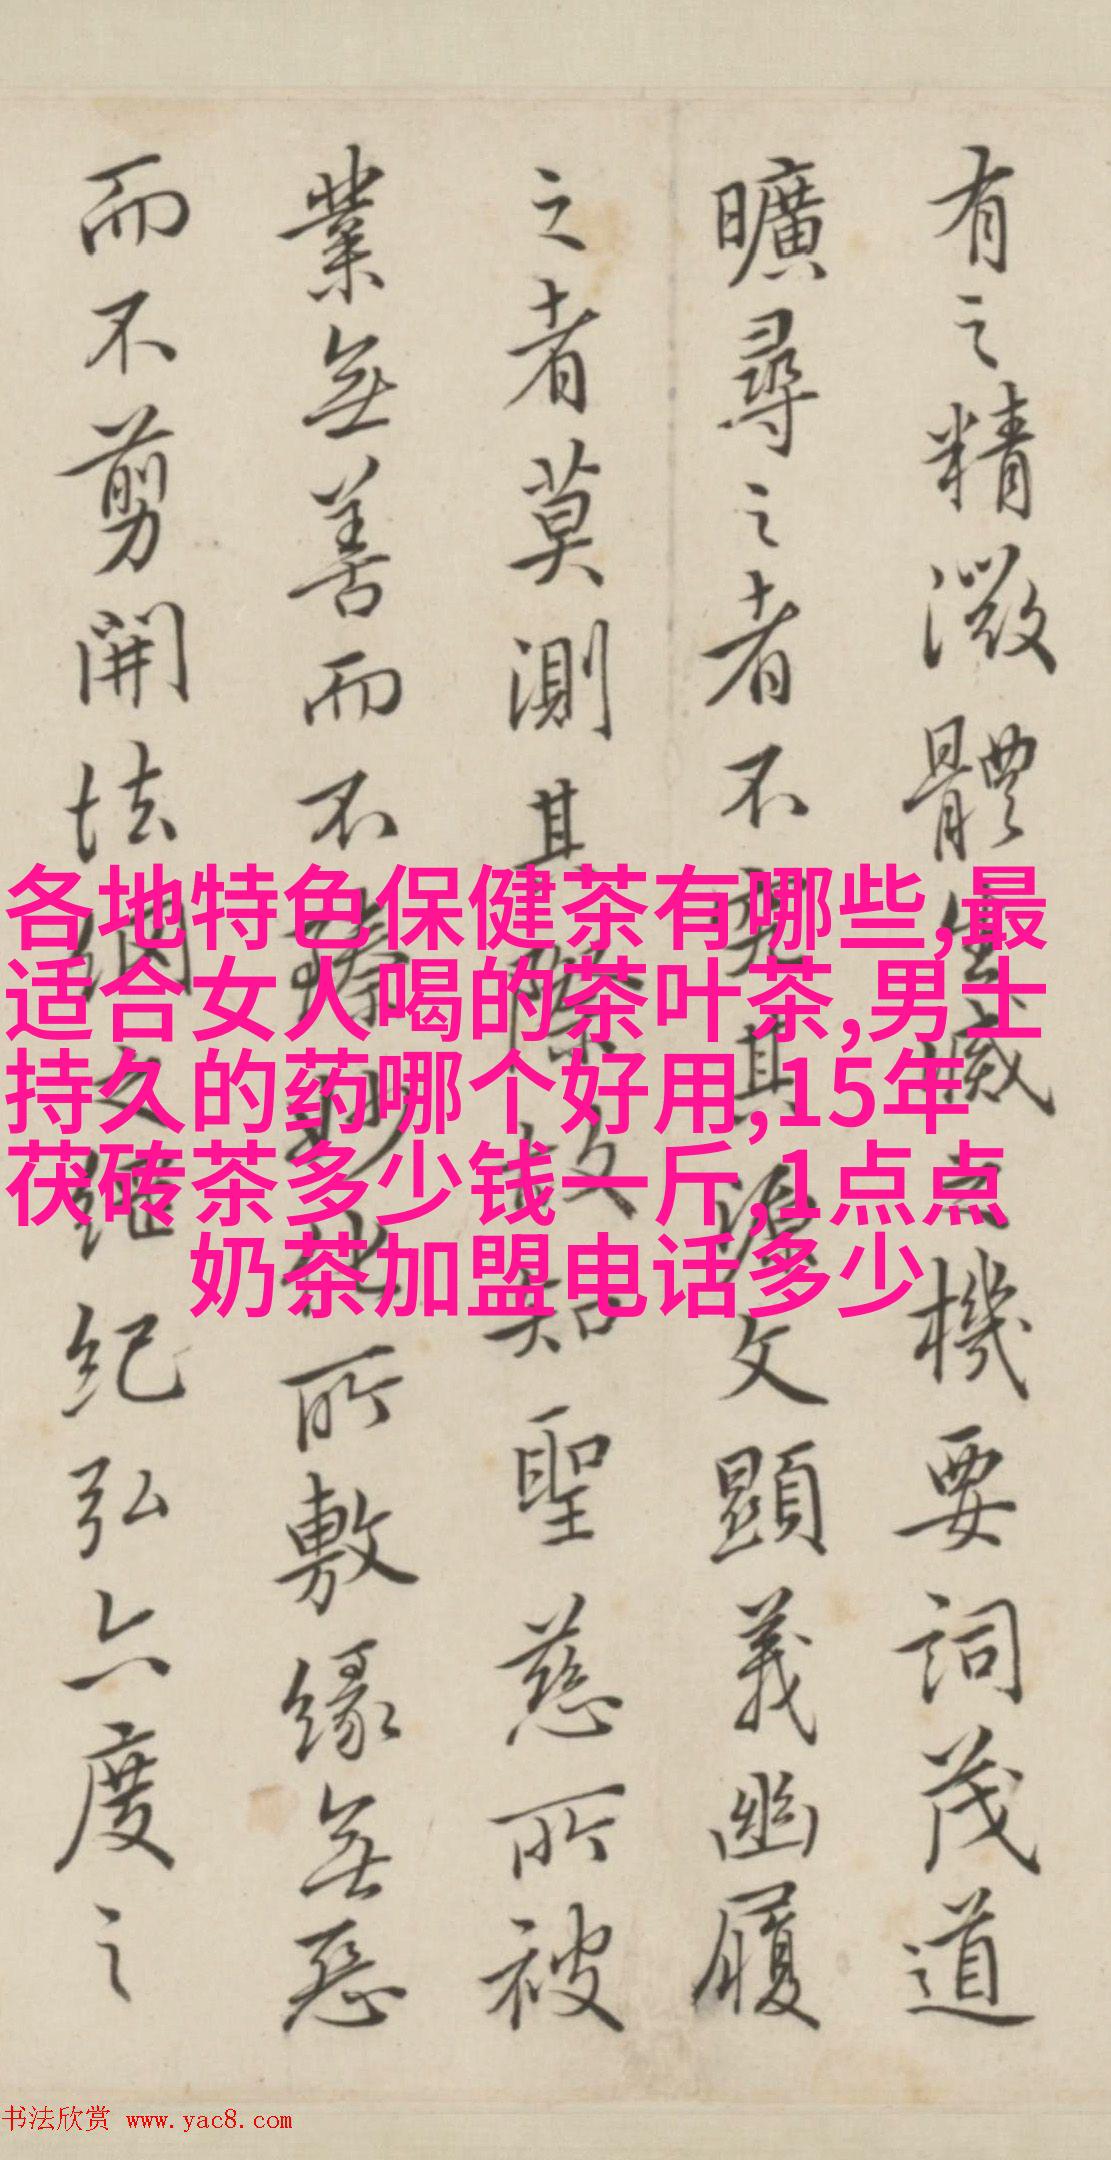 有之精微體生滅之機要詞茂道
曠尋之者不究其源文顯義幽履
之者莫測其際故知聖慈所被
業無善而不臻妙化所敷緣無惡
而不剪開法網之綱紀弘六度之
各地特色保健茶有哪些,最
适合女人喝的茶叶茶,男士
持久的药哪个好用,15年
茯砖茶多少钱一斤,1点点
奶茶加盟电话多少
书法欣赏 www.yac8.com